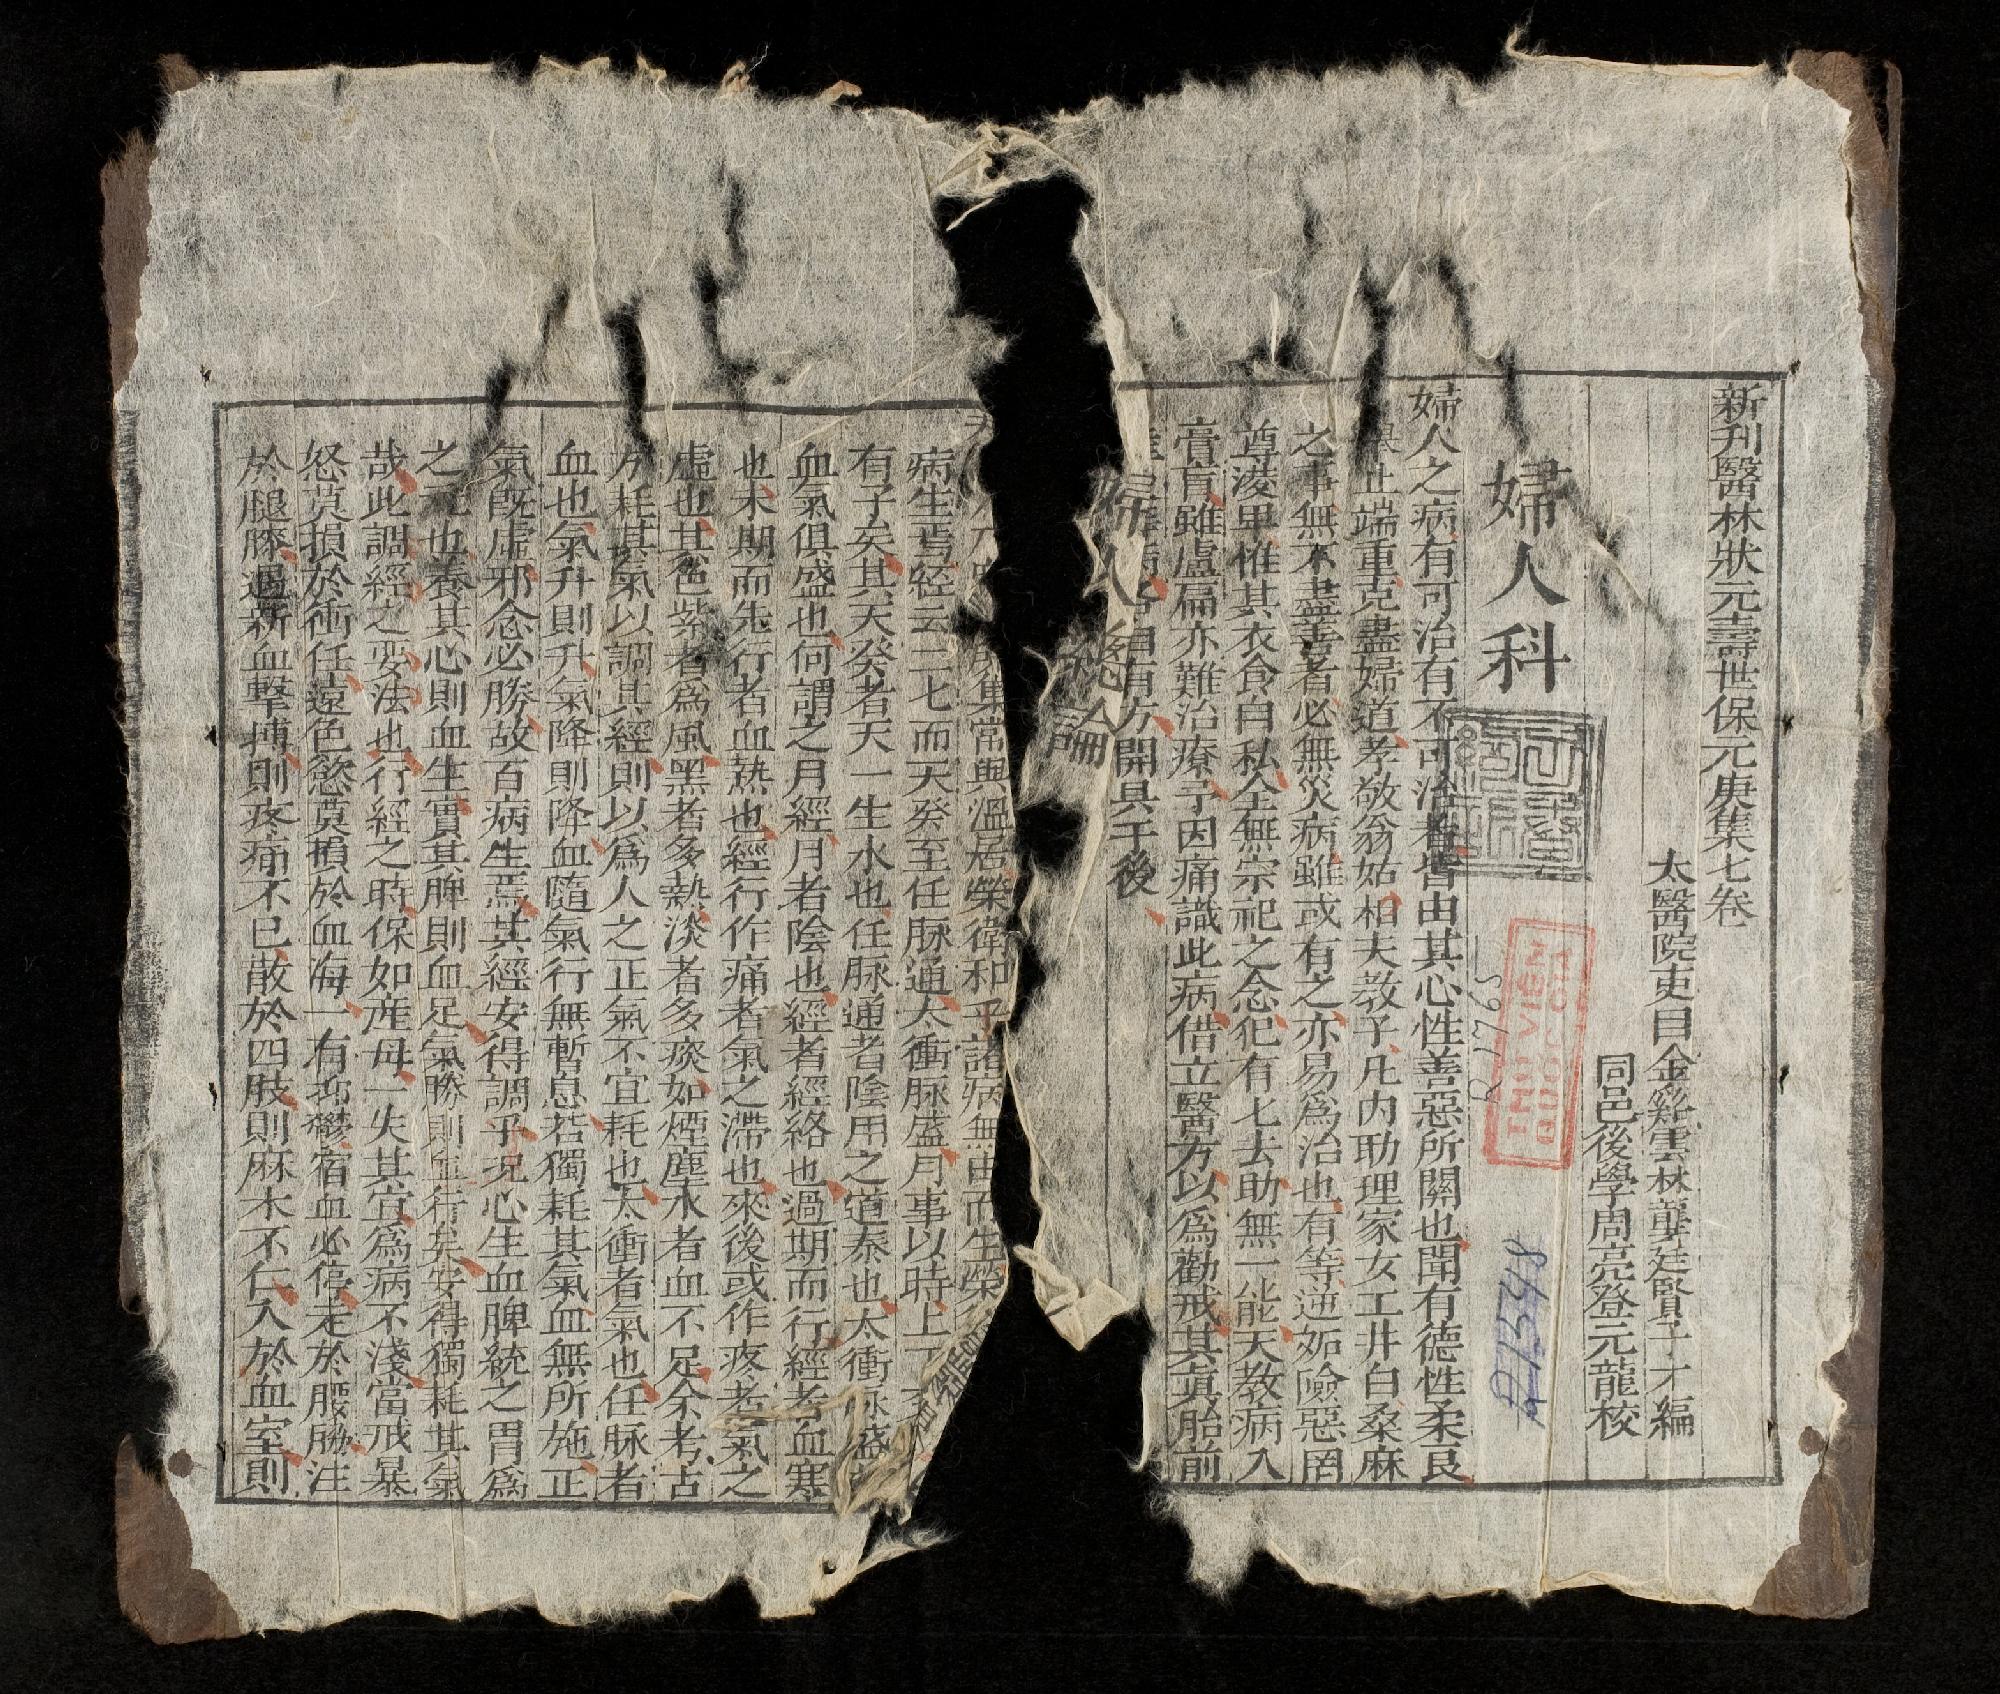 新刊醫林狀元壽世保元庚集七卷
太醫院吏目金谿雲林龔廷賢子才編
同邑後學周亮登元龍校
婦人科
婦人之病有可治有不可治者皆由其心性善惡所關也聞有德性柔良
止端重克盡婦道孝敬翁姑相夫教子凡內助理家女工井臼桑麻
之事無不盡善者必無災病雖或有之亦易為治也有等逆妬險惡罔
尊凌卑惟其衣食自私全無宗祀之念犯有七去助無一能天教病入
膏肓雖盧扁亦難治療予因痛識此病借立醫方以為勸戒其真胎前
自有方開具于後
婦人總論
集常與溫居榮衛和平諸病無由而生榮
病生焉經云二七而天癸至任脉通太衝脉盛月事以時上下
有子矣其天癸者天一生水也任脉通者陰用之道泰也太衝脉盛
血氣俱盛也何謂之月經月者陰也經者經絡也過期而行經者血寒
也未期而先行者血熱也經行作痛者氣之滯也來後或作疼者氣之
虛也其色紫者為風黑者多熱淡者多痰如煙塵水者血不足余考古
方耗其氣以調其經則以為人之正氣不宜耗也太衝者氣也任脉者
血也氣升則升氣降則降血隨氣行無暫息若獨耗其氣血無所施正
氣既虛邪念必勝故百病生焉其經安得調乎況心生血脾統之胃為
之元也養其心則血生實其脾則血足氣勝則血行矣安得獨耗其氣
哉此調經之要法也行經之時保如產母一失其宜為病不淺當戒暴
怒莫損於衝任遠色慾莫損於血海一有抑鬱宿血必停走於腰脇注
於腿膝遇新血擊搏則疼痛不已散於四肢則麻木不仁入於血室則
R 1765